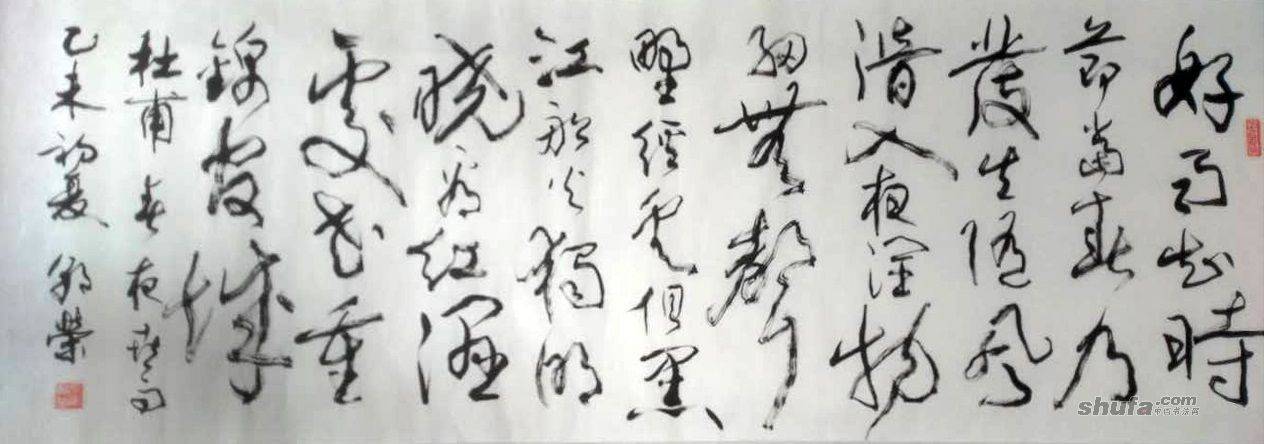 好雨知時
節當春乃
發生隨風
潛入夜潤物
細無聲
野徑雲俱黑
江船火獨明
曉看紅濕
處花重
錦官城
杜甫春夜喜雨
乙未初夏 榮
shufa.com
中国书法网